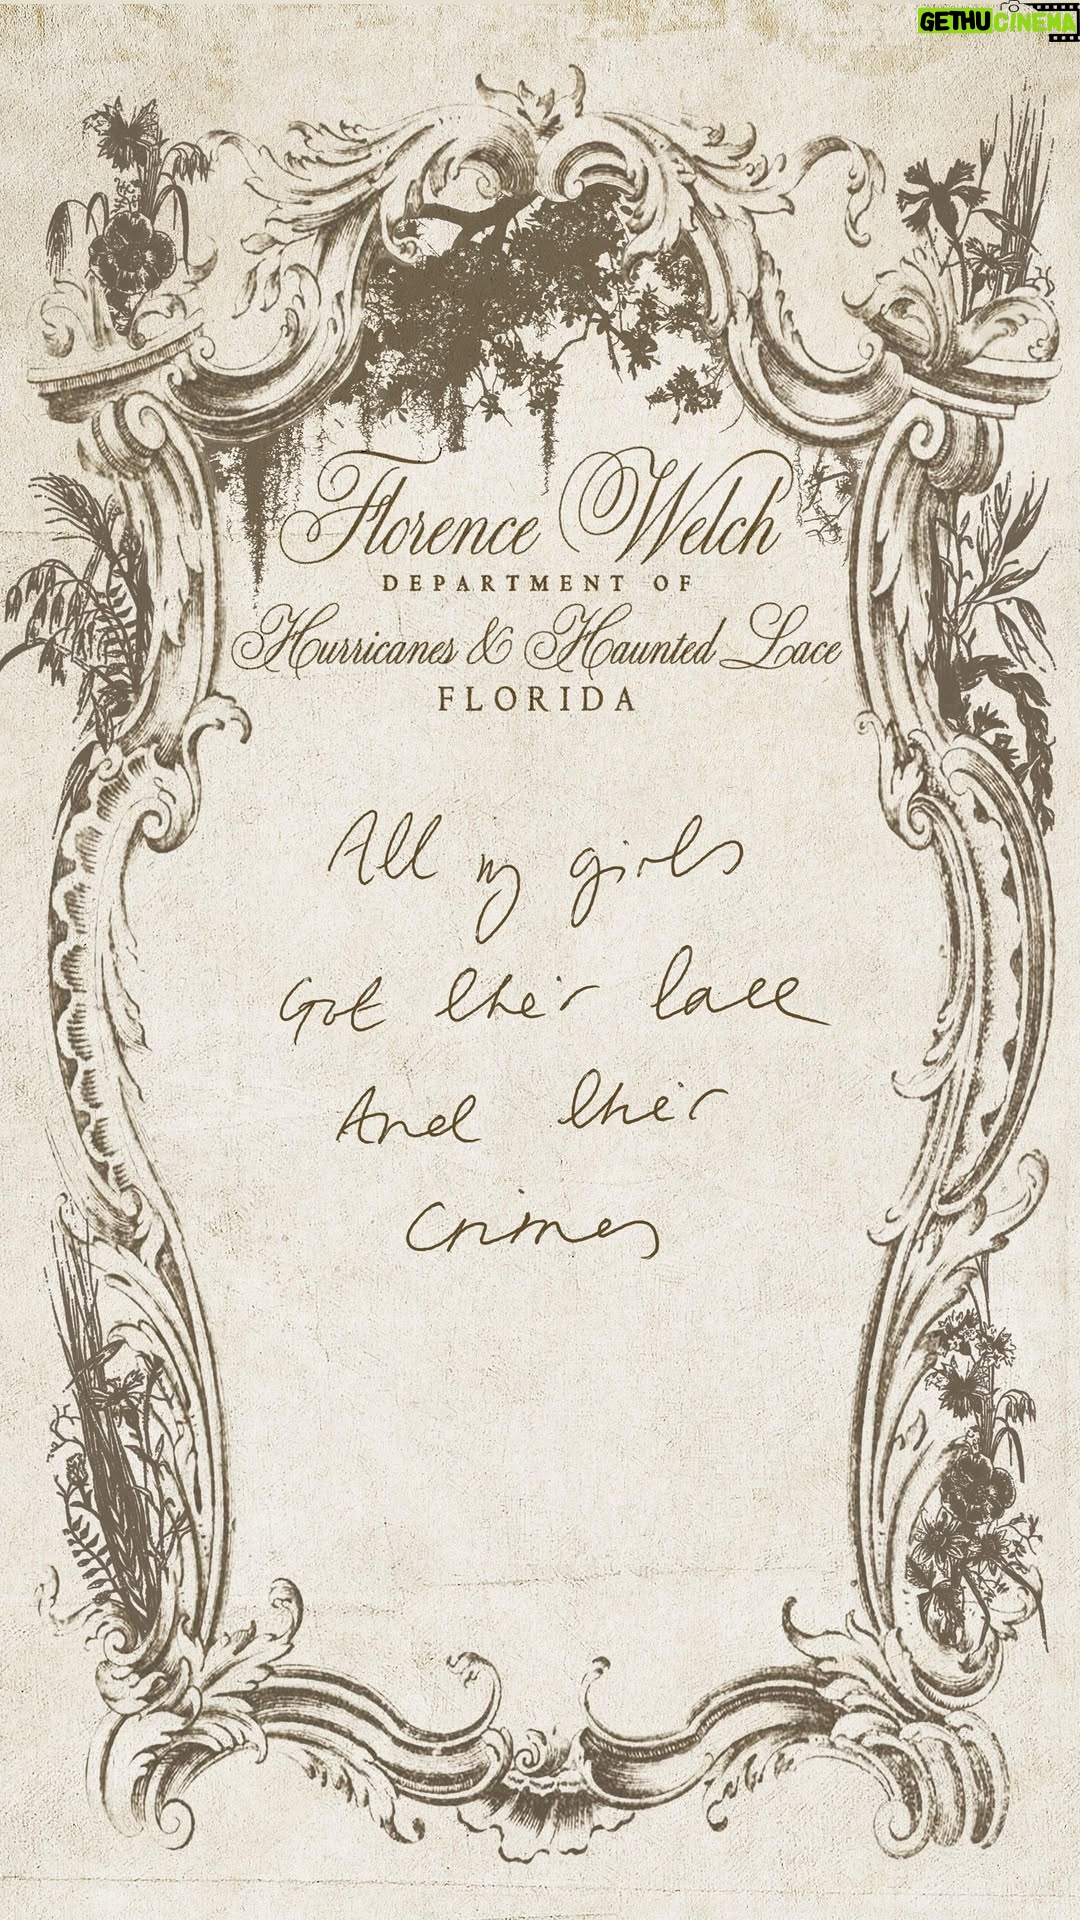 GETHUCINEMA
Florence Welch
DEPARTMENT OF
Hurricanes & Haunted Lace
FLORIDA
All my girls
Got their lace
And their
Crimes